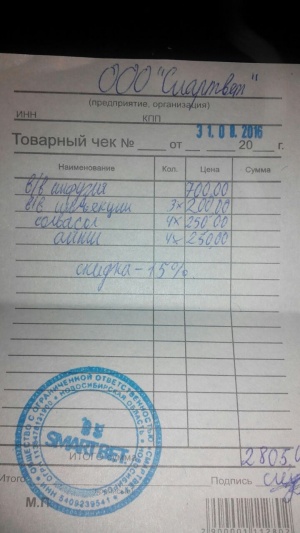 ООО "Смартвет"
(предприятие, организация)
ИНН КПП
31.08.2016
Товарный чек № от 20 г.
Наименование Кол. Цена Сумма
в/в инфузия 700,00
в/в инъекции 3х 200,00
4х 250,00
4х 250,00
скидка - 15%
ОБЩЕСТВО С ОГРАНИЧЕННОЙ ОТВЕТСТВЕННОСТЬЮ
НОВОСИБИРСК
SMARTВЕТ
ИНН 5409239541
Итого 2805,0
Подпись
М.П.